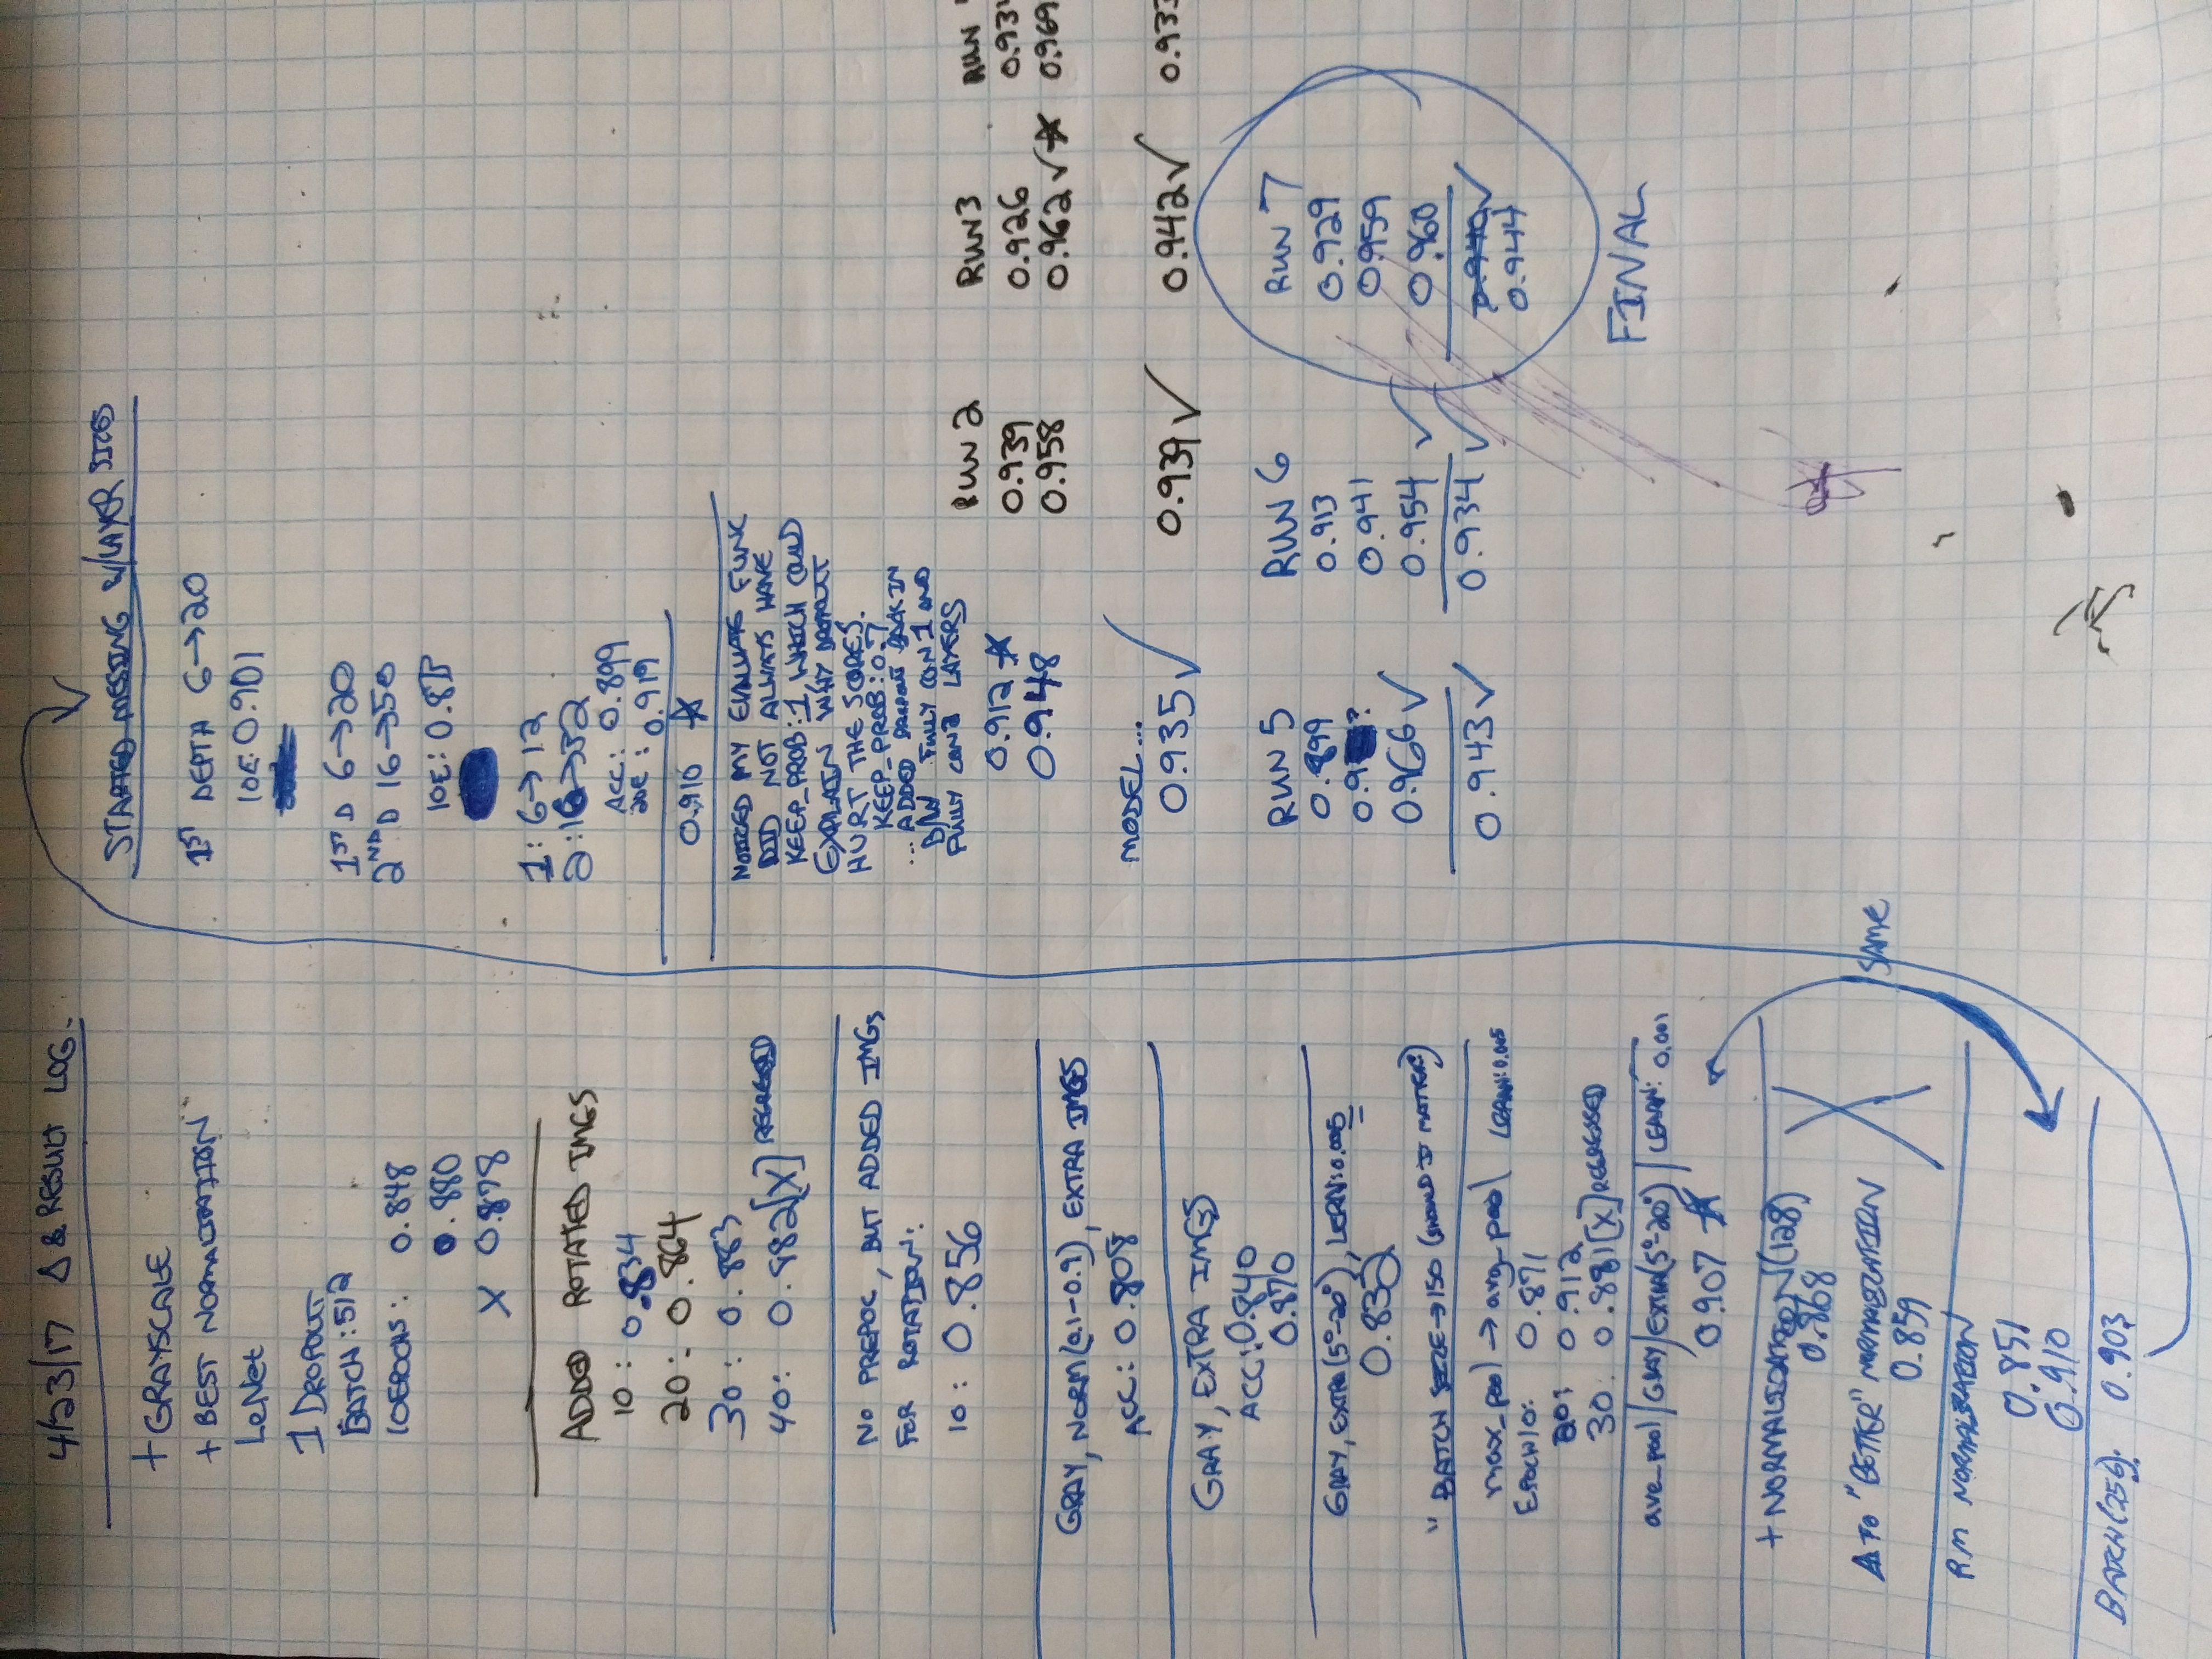 4/23/17 Δ & RESULT LOG.
+ GRAYSCALE
+ BEST NORMALIZATION
LeNet
1 DROPOUT
BATCH: 512
10EPOCHS: 0.848
0.880
X 0.878
ADDED ROTATED IMGS
10: 0.834
20: 0.864
30: 0.883
40: 0.882[X] REGRESSED
NO PREPOC, BUT ADDED IMGS
FOR ROTATION:
10: 0.856
GRAY, NORM(0.1-0.9), EXTRA IMGS
ACC: 0.808
GRAY, EXTRA IMGS
ACC: 0.840
0.870
GRAY, EXTRA(5°-20°), LERN: 0.005
0.832
" BATCH SIZE→150 (SHOULD IT MATTER?)
max_pool → avg_pool LEARN: 0.005
EPOCH10: 0.871
20: 0.912
30: 0.881[X] REGRESSED
ave_pool | GRAY | EXTRA(5°-20°) | LEARN: 0.001
0.907 ☆
+ NORMALIZATION(128)
0.868
Δ TO "BETTER" NORMALIZATION
0.859
X
SAME
RM NORMALIZATION
0.851
0.910
BATCH(256): 0.903
STARTED MESSING W/LAYER SIZES
1ST DEPTH 6→20
10E: 0.901
1ST D 6→20
2ND D 16→50
10E:
1: 6→12
2: 16→32
ACC: 0.899
20E: 0.919
0.910 ☆
NOTICED MY EVALUATE FUNC
DID NOT ALWAYS HAVE
KEEP_PROB: 1, WHICH COULD
EXPLAIN WHY DROPOUT
HURT THE SCORES.
KEEP_PROB: 0.7
... ADDED DROPOUT BACK IN
B/W FULLY CON 1 AND
FULLY CON2 LAYERS
0.912 ☆
0.948
RUN 2
0.939
0.958
RUN 3
0.926
0.962 ✓ ☆
RUN
0.969
MODEL...
0.935 ✓
0.939 ✓
0.942 ✓
0.933
RUN 5
0.899
0.9 ?
0.966 ✓
0.943 ✓
RUN 6
0.913
0.941
0.954 ✓
0.934 ✓
RUN 7
0.929
0.959
0.960
0.940 ✓
0.944
FINAL